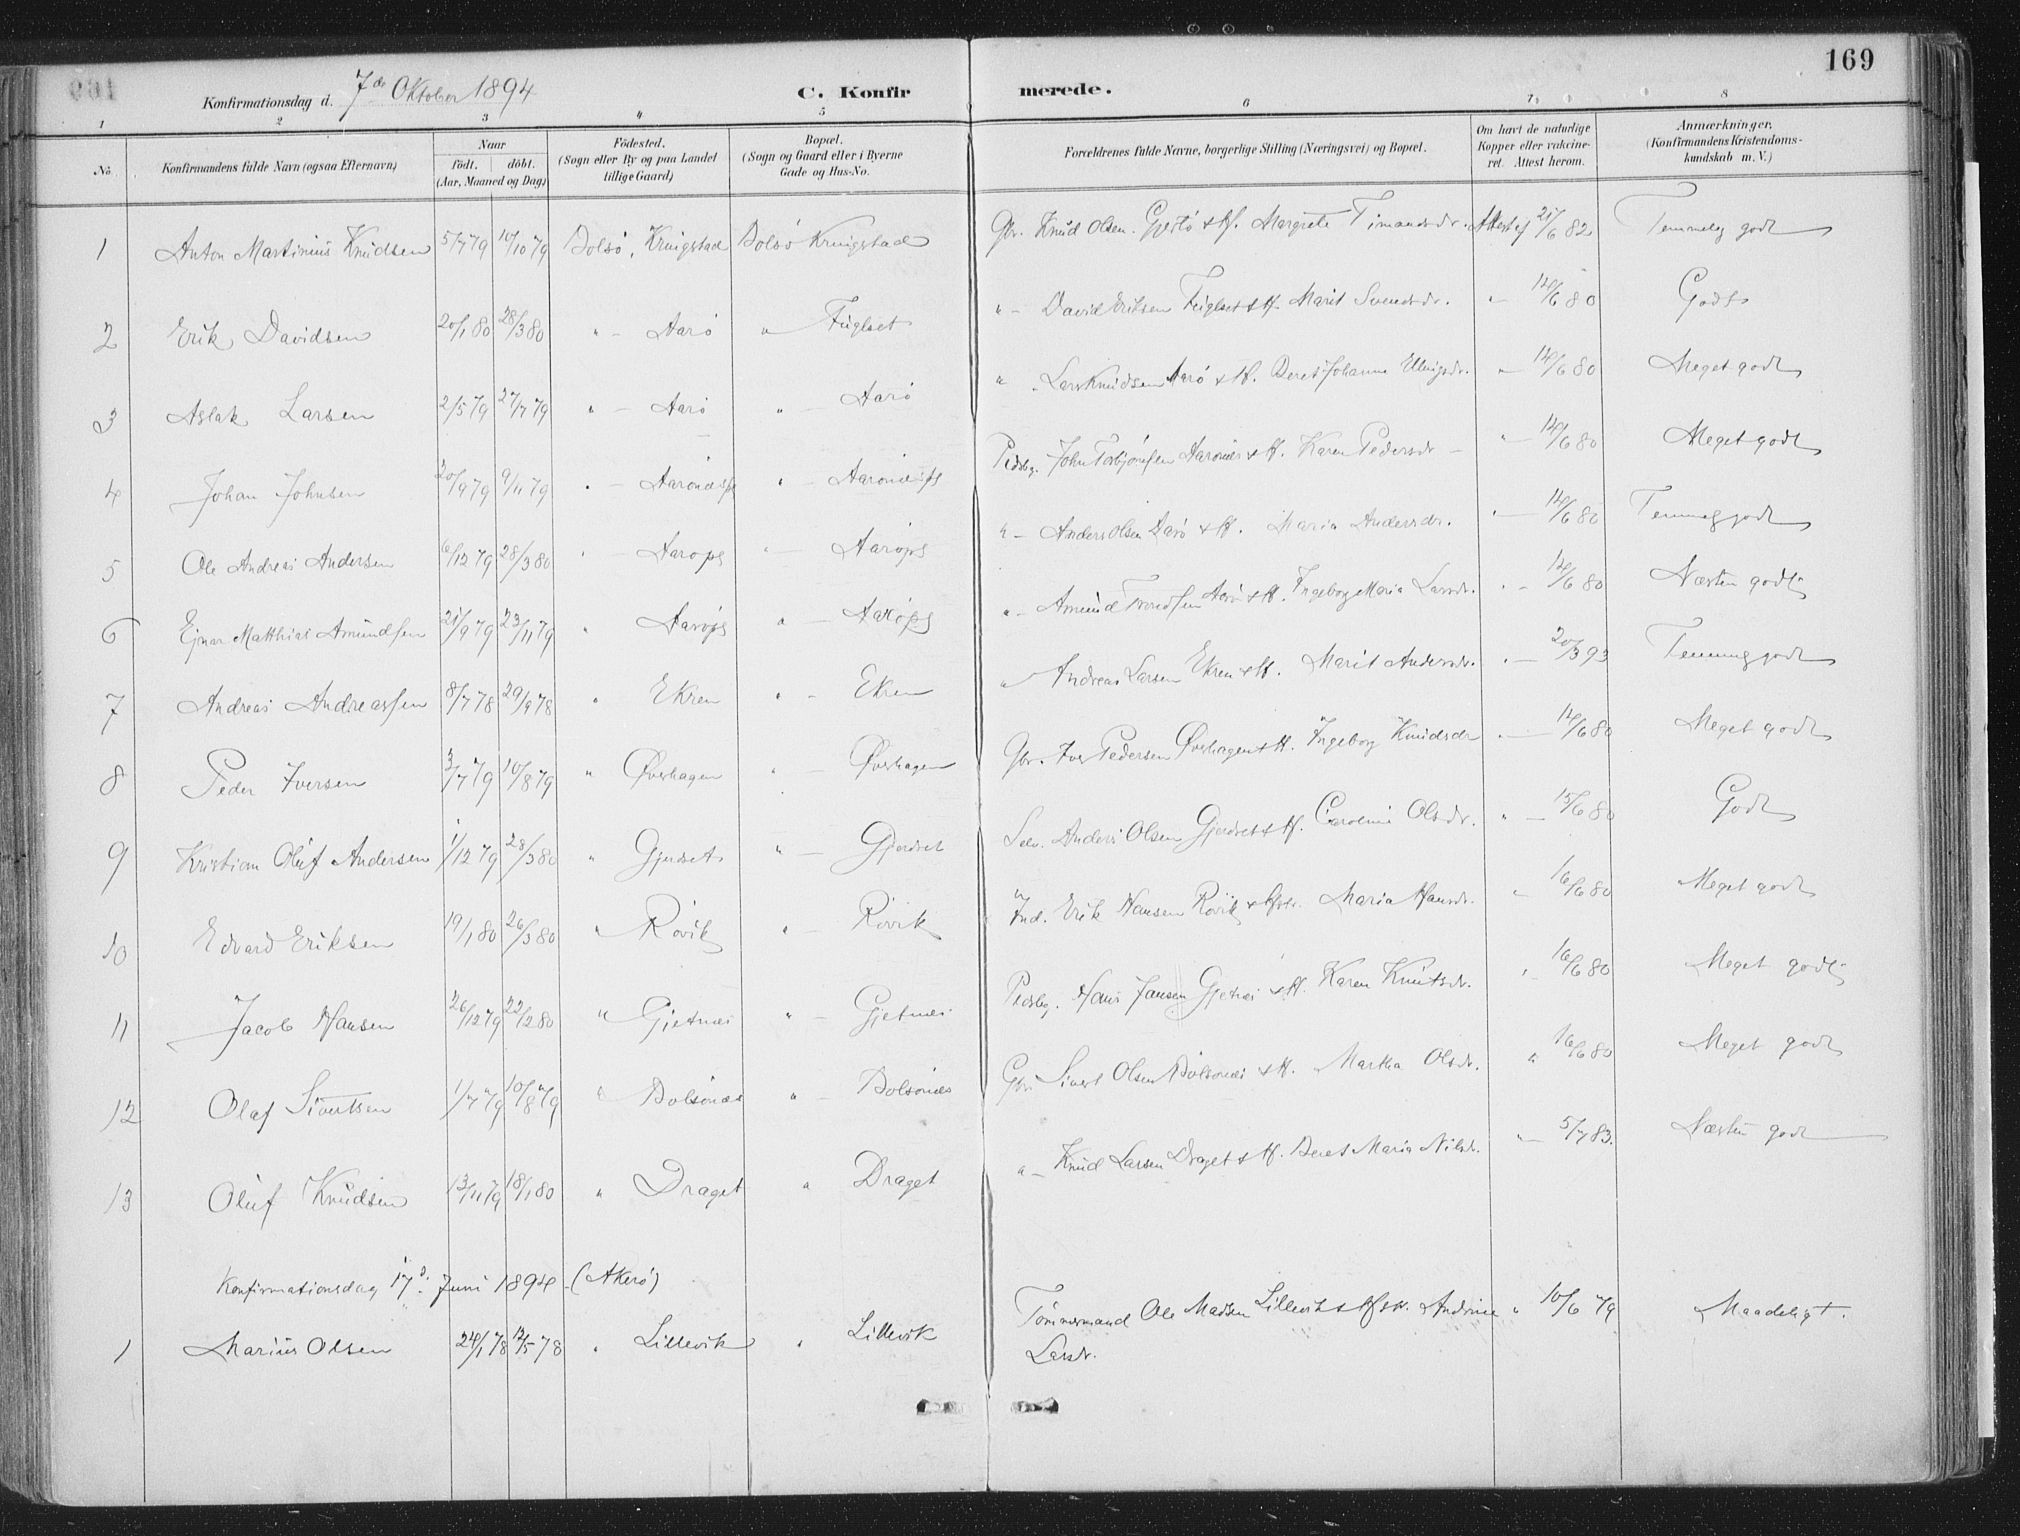 169
Konfirmationsdag d. 7de Oktober 1894
C. Konfirmerede.
1 2 3 4 5 6 7 8
No. Konfirmandens fulde Navn (ogsaa Efternavn) Naar födt. döbt. (Aar, Maaned og Dag) Födested. (Sogn eller By og paa Landet tillige Gaard) Bopæl. (Sogn og Gaard eller i Byerne Gade og Hus-No. Forældrenes fulde Navne, borgerlige Stilling (Næringsvei) og Bopæl. Om havt de naturlige Kopper eller vakcineret. Attest herom. Anmærkninger. (Konfirmandens Kristendomskundskab m. V.)
1 Anton Martinius Knudsen 5/7 79 10/10 79 Bolsö, Kringstad Bolsö Kringstad Gbr. Knud Olsen & H. Margrete Timandsdr. Attest af 21/6 82 Temmelig godt
2 Erik Davidsen 20/1 80 28/3 80 " - Aarö " Fuglset " - David Eriksen Fuglset & H. Marit Svendsdr. " 14/6 80 Godt
3 Aslak Larsen 2/5 79 27/7 79 " - Aarö " - Aarö " Lars Knudsen Aarö & H. Beret Johanne " - 14/6 80 Meget godt
4 Johan Johnsen 20/9 79 9/11 79 " - Aarönæs " - Aarönæs Pldsbg. John Torbjörnsen Aarönæs & H. Karen Pedersdr " - 14/6 80 Meget godt
5 Ole Andreas Andersen 6/12 79 28/3 80 " - Aaröpl " - Aaröpl " - Anders Olsen Aarö & H. Maria Andersdr. " - 14/6 80 Temmelig godt
6 Ejnar Matthias Amundsen 21/9 79 23/11 79 " Aaröpl " - Aaröpl " - Amund Trondsen Aarö & H. Ingeborg Maria Larsdr. " - 14/6 80 Næsten godt
7 Andreas Andreassen 8/7 78 29/9 78 " Ekren " - Ekren " Andreas Larsen Ekren & H. Marit Andersdr. " - 20/3 93 Temmelig godt
8 Peder Iversen 3/7 79 10/8 79 " Øverhagen " - Øverhagen Gbr. Iver Pedersen Øverhagen & H. Ingeborg Knudsdr " - 14/6 80 Meget godt
9 Kristian Oluf Andersen 1/12 79 28/3 80 " Gjerdset " - Gjerdset Anders Olsen Gjerdset & H. Caroline Olsdr. " - 15/6 80 Godt
10 Edvard Eriksen 19/1 80 26/3 80 " Rövik " - Rövik Ind. Erik Hansen Rövik Maria Hansdr. " 16/6 80 Meget godt
11 Jacob Hansen 26/12 79 22/2 80 " Gjetnæs " - Gjetnæs Pldsbg. Hans Jansen Gjetnæs & H. Karen Knutsdr. " 16/6 80 Meget godt
12 Olaf Sivertsen 1/7 79 10/8 79 " Bolsönæs " - Bolsönæs Gbr. Sivert Olsen Bolsönæs & H. Martha Olsdr. " 16/6 80 Meget godt
13 Oluf Knudsen 13/11 79 18/1 80 " Draget " Draget " - Knud Larsen Draget & H. Beret Maria Nilsdr. " - 5/7 83. Næsten godt
Konfirmationsdag 17d. Juni 1894 (Akerö)
1 Marius Olsen 24/1 78 12/5 78 " Lillevik " Lillevik Tömmermand Ole Madsen Lillevik Andrine " 10/6 79 Maadeligt.
Larsdr.